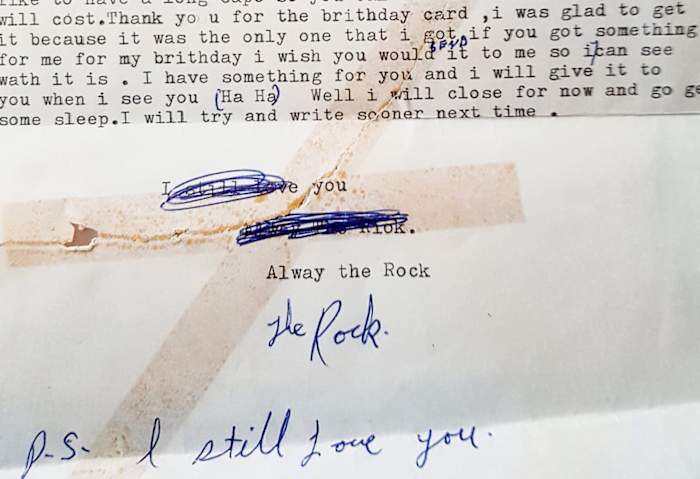 like to have a long
will cost.Thank yo u for the brithday card ,i was glad to get
it because it was the only one that i got,if you got something
for me for my brithday i wish you would SEND it to me so i can see
wath it is . I have something for you and i will give it to
you when i see you (Ha Ha) Well i will close for now and go ge
some sleep.I will try and write sooner next time .
I still love you
Alway the Rock
The Rock.
P.S. I still Love you.